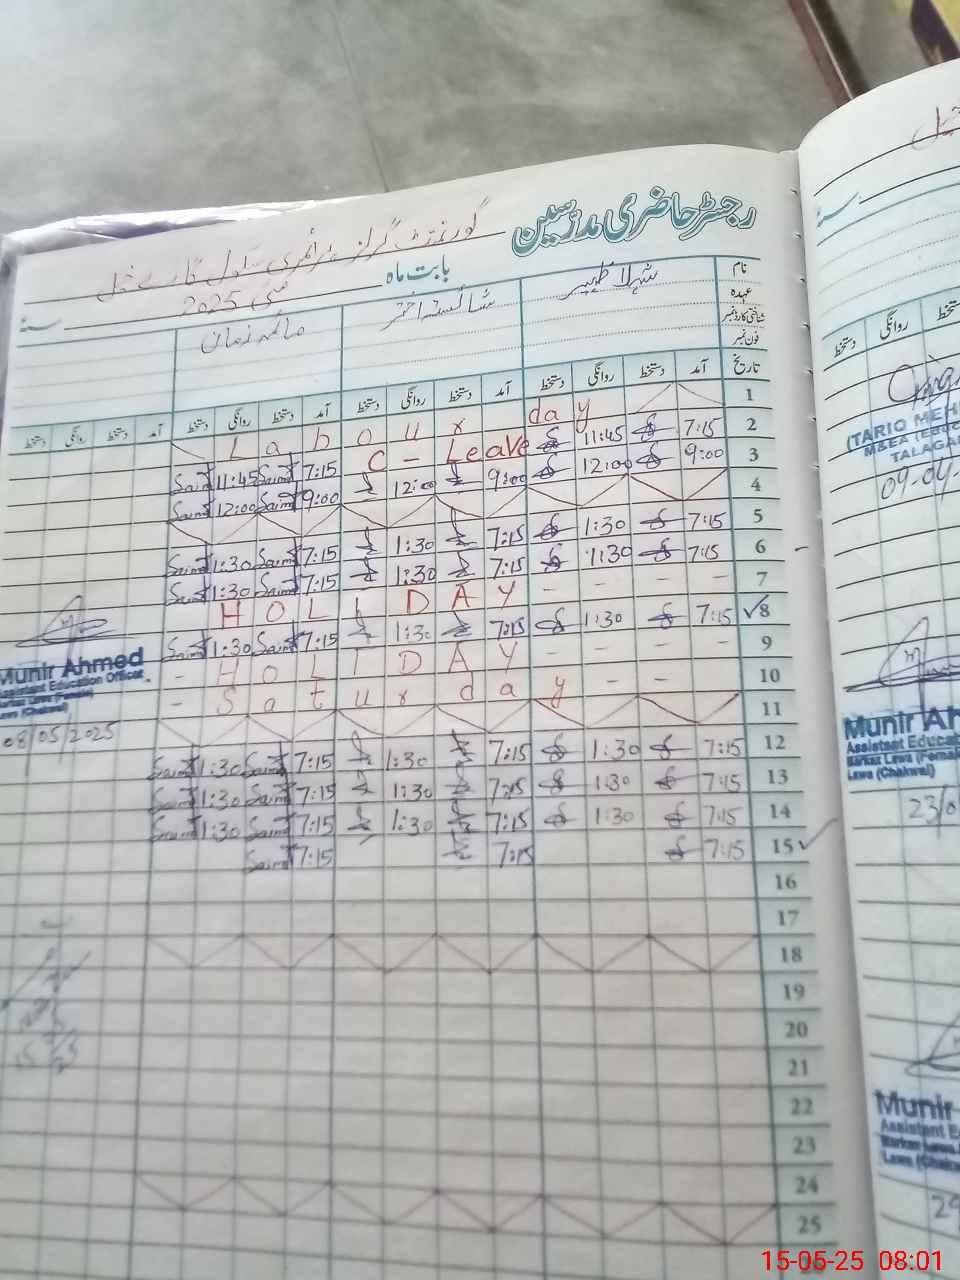 رجسٹر حاضری مدرسین
گورنمنٹ گرلز پرائمری سکول
بابت ماہ مئی 2025 سنہ
نام شہلا ظہیر شائستہ اختر صائمہ زمان
عہدہ
شناختی کارڈ نمبر
فون نمبر
تاریخ آمد دستخط روانگی دستخط آمد دستخط روانگی دستخط آمد دستخط روانگی دستخط آمد دستخط روانگی دستخط
1 Labour day
2 7:15 11:45 C - Leave 7:15 Saima 11:45 Saima
3 9:00 12:00 9:00 12:00 9:00 Saima 12:00 Saima
4
5 7:15 1:30 7:15 1:30 7:15 Saima 1:30 Saima
6 7:15 1:30 7:15 1:30 7:15 Saima 1:30 Saima
7 HOLIDAY - - - -
8 7:15 1:30 7:15 1:30 7:15 Saima 1:30 Saima
9 - HOLIDAY - - -
10 - Saturday - -
11
12 7:15 1:30 7:15 1:30 7:15 Saima 1:30 Saima
13 7:15 1:30 7:15 1:30 7:15 Saima 1:30 Saima
14 7:15 1:30 7:15 1:30 7:15 Saima 1:30 Saima
15 7:15 7:15 7:15 Saima
16
17
18
19
20
21
22
23
24
25
Munir Ahmed
Assistant Education Officer
Markaz Lawa (Female)
Lawa (Chakwal)
08/05/2025
دستخط روانگی دستخط
(TARIQ MEH
M&EA (EDUC
TALAGA
09-04-
Munir Ah
Assistant Educat
Markaz Lawa (Female
Lawa (Chakwal)
23/0
Munir
Assistant E
Markaz Lawa
Lawa (Chakwa
29
15-05-25 08:01